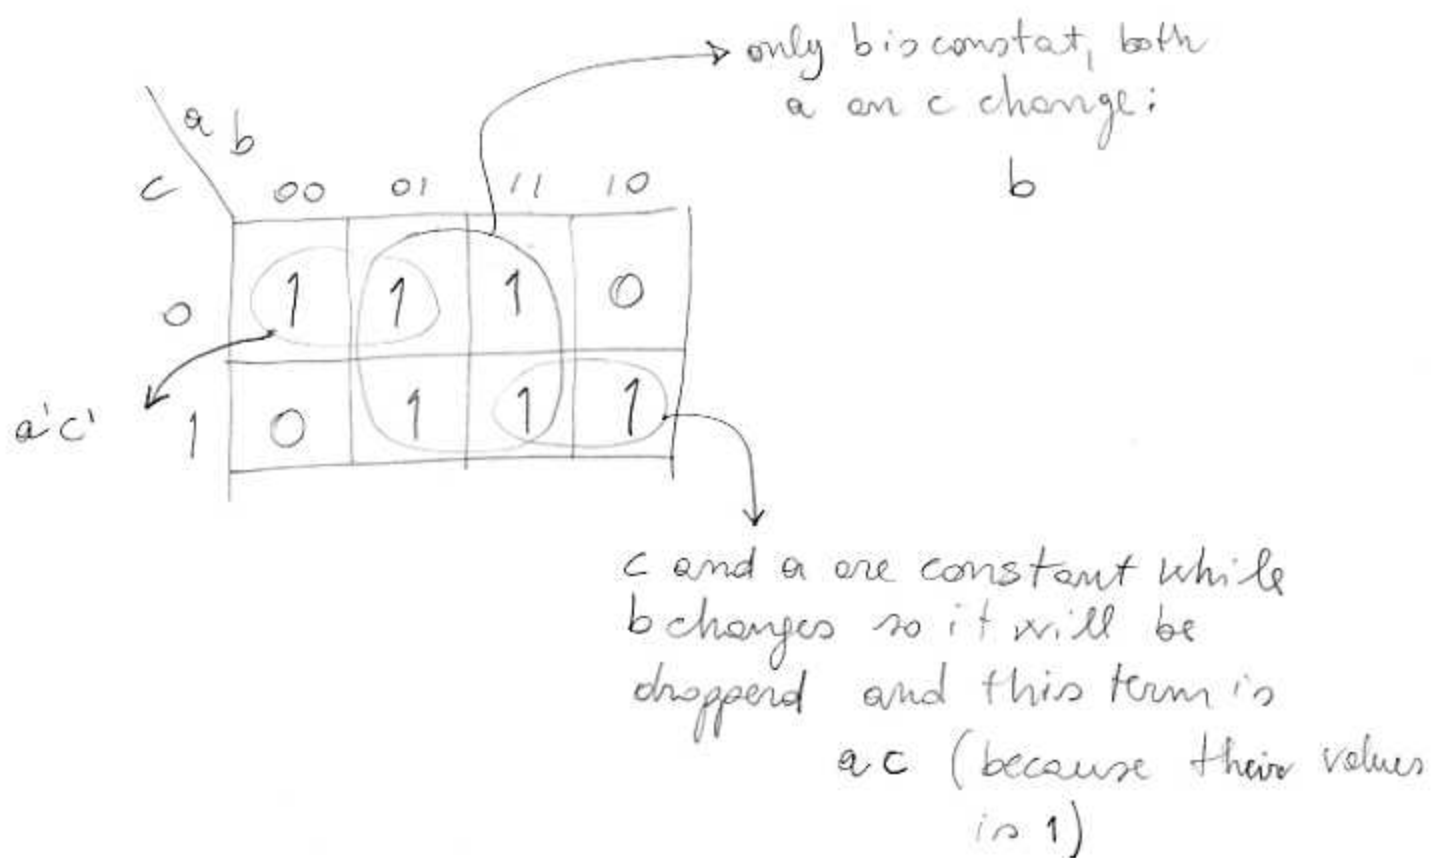 only b is constat, both
a on c change:
b
a b
c
00 01 11 10
0 1 1 1 0
a'c'
1 0 1 1 1
c and a are constant while
b changes so it will be
dropperd and this term is
ac (because their values
is 1)